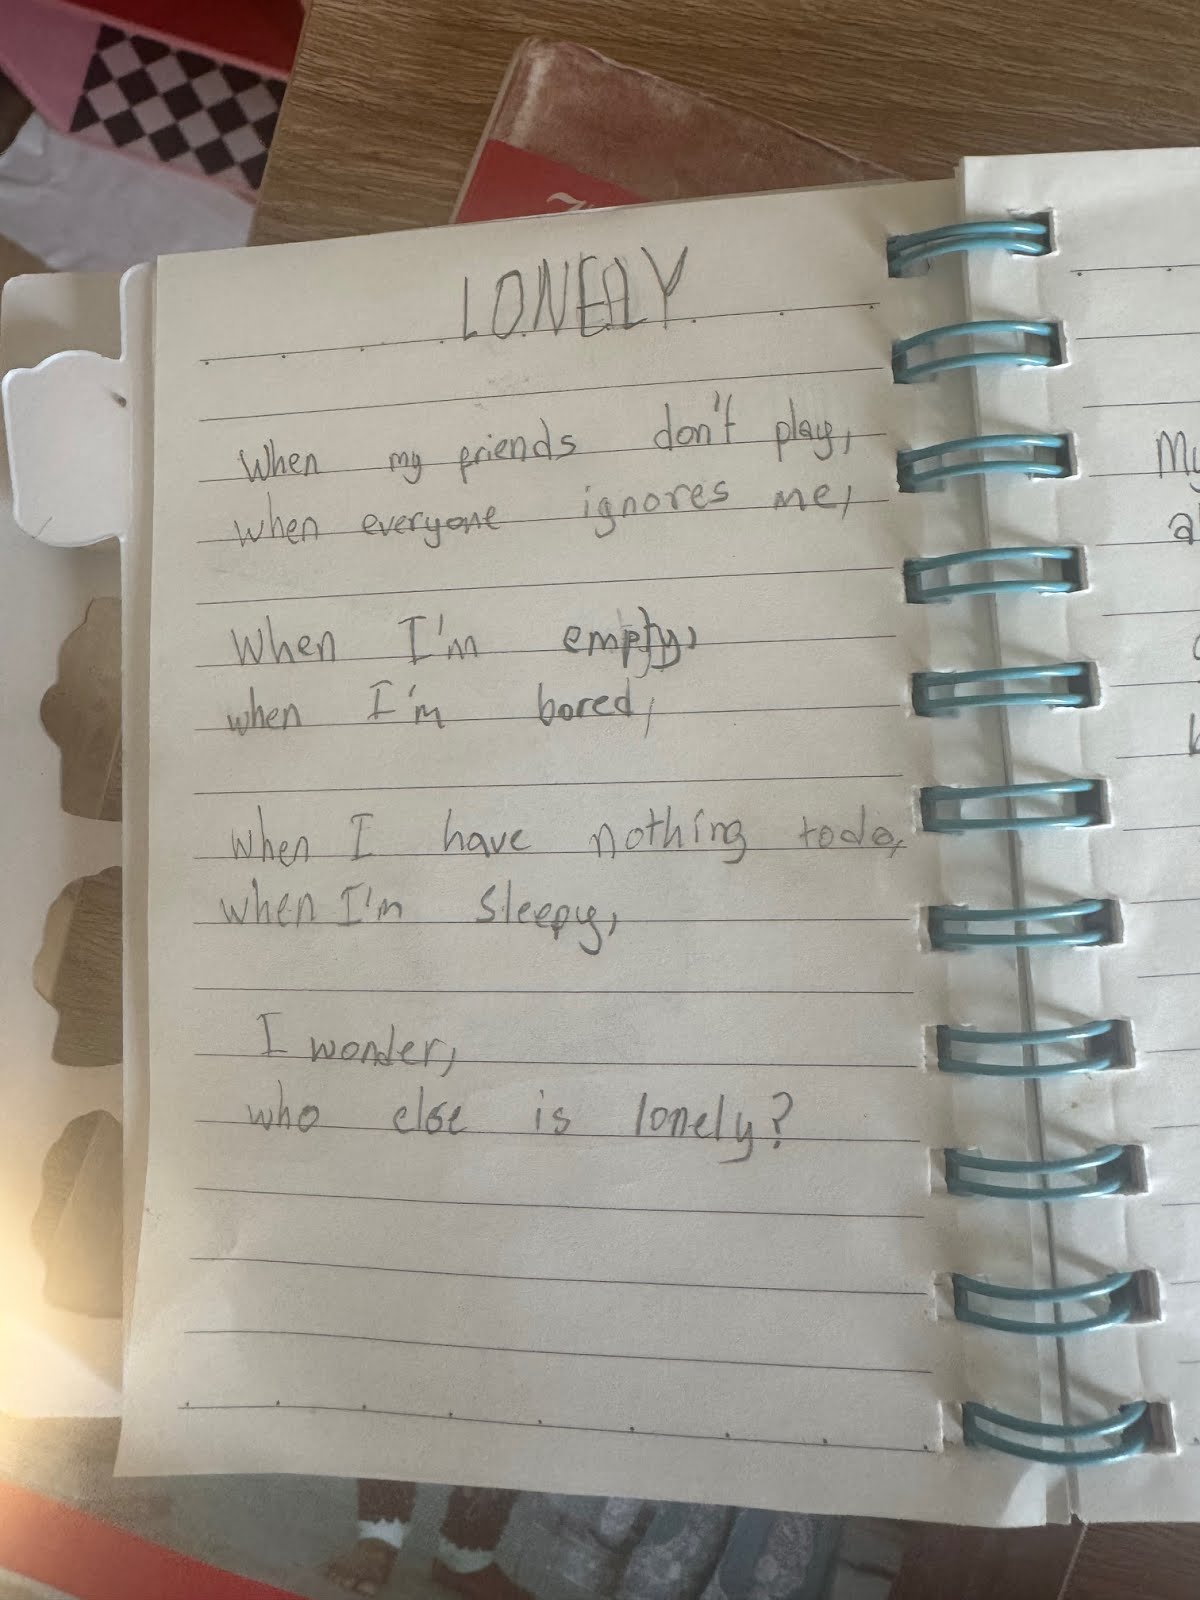 LONELY
When my friends don't play,
when everyone ignores me,
When I'm empty,
when I'm bored,
when I have nothing todo,
when I'm sleepy,
I wonder,
who else is lonely?
My